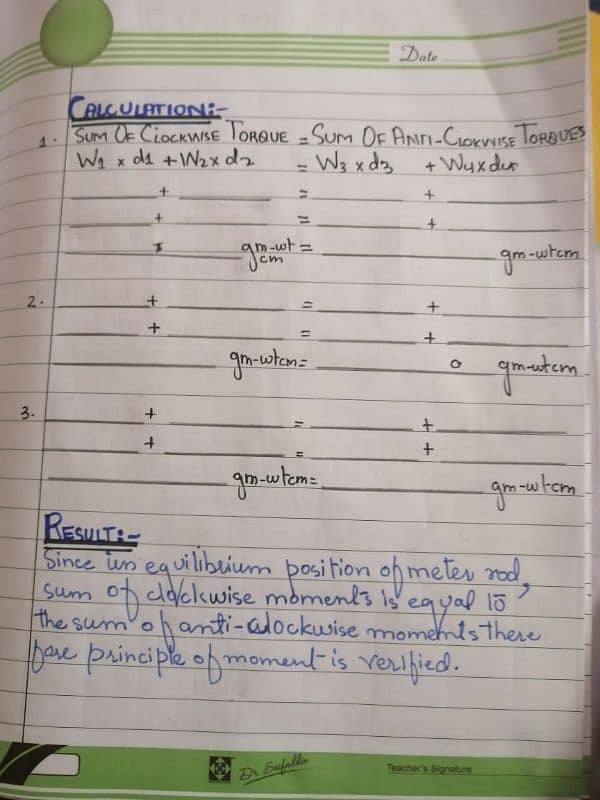 Date
CALCULATION:-
1. SUM OF CLOCKWISE TORQUE = SUM OF ANTI-CLOKWISE TORQUES
W1 x d1 + W2 x d2 = W3 x d3 + W4 x d4
+ = +
+ = +
gm-wt cm = gm-wtcm
2. + = +
+ = +
gm-wtcm = gm-wtcm
3. + = +
+ = +
gm-wtcm = gm-wtcm
RESULT:-
Since in equilibrium position of meter rod,
sum of clockwise moments is equal to
the sum of anti-clockwise moments there
fore principle of moment is verified.
Dr. Saifuddin
Teacher's Signature